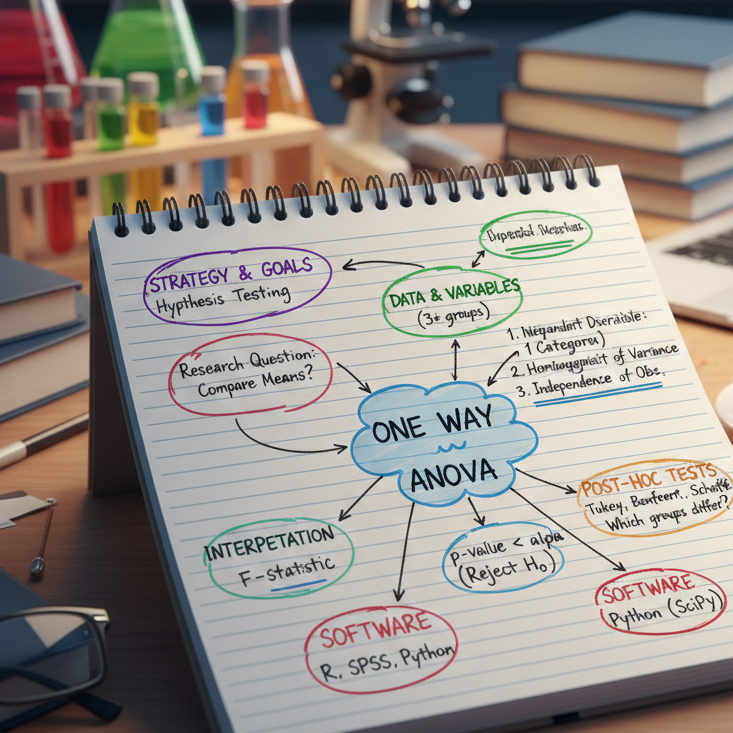 STRATEGY & GOALS
Hypthesis Testing
DATA & VARIABLES
(3+ groups)
Research Question:
Compare Means?
1.
1 Categora)
2. of Variance
3. Independence of Obs.
ONE WAY
ANOVA
POST-HOC TESTS
Tukey,
Which groups differ?
INTERPETATION
F-statistic
p-value < alpa
(Reject H₀)
SOFTWARE
Python (SciPy)
SOFTWARE
R, SPSS, Python